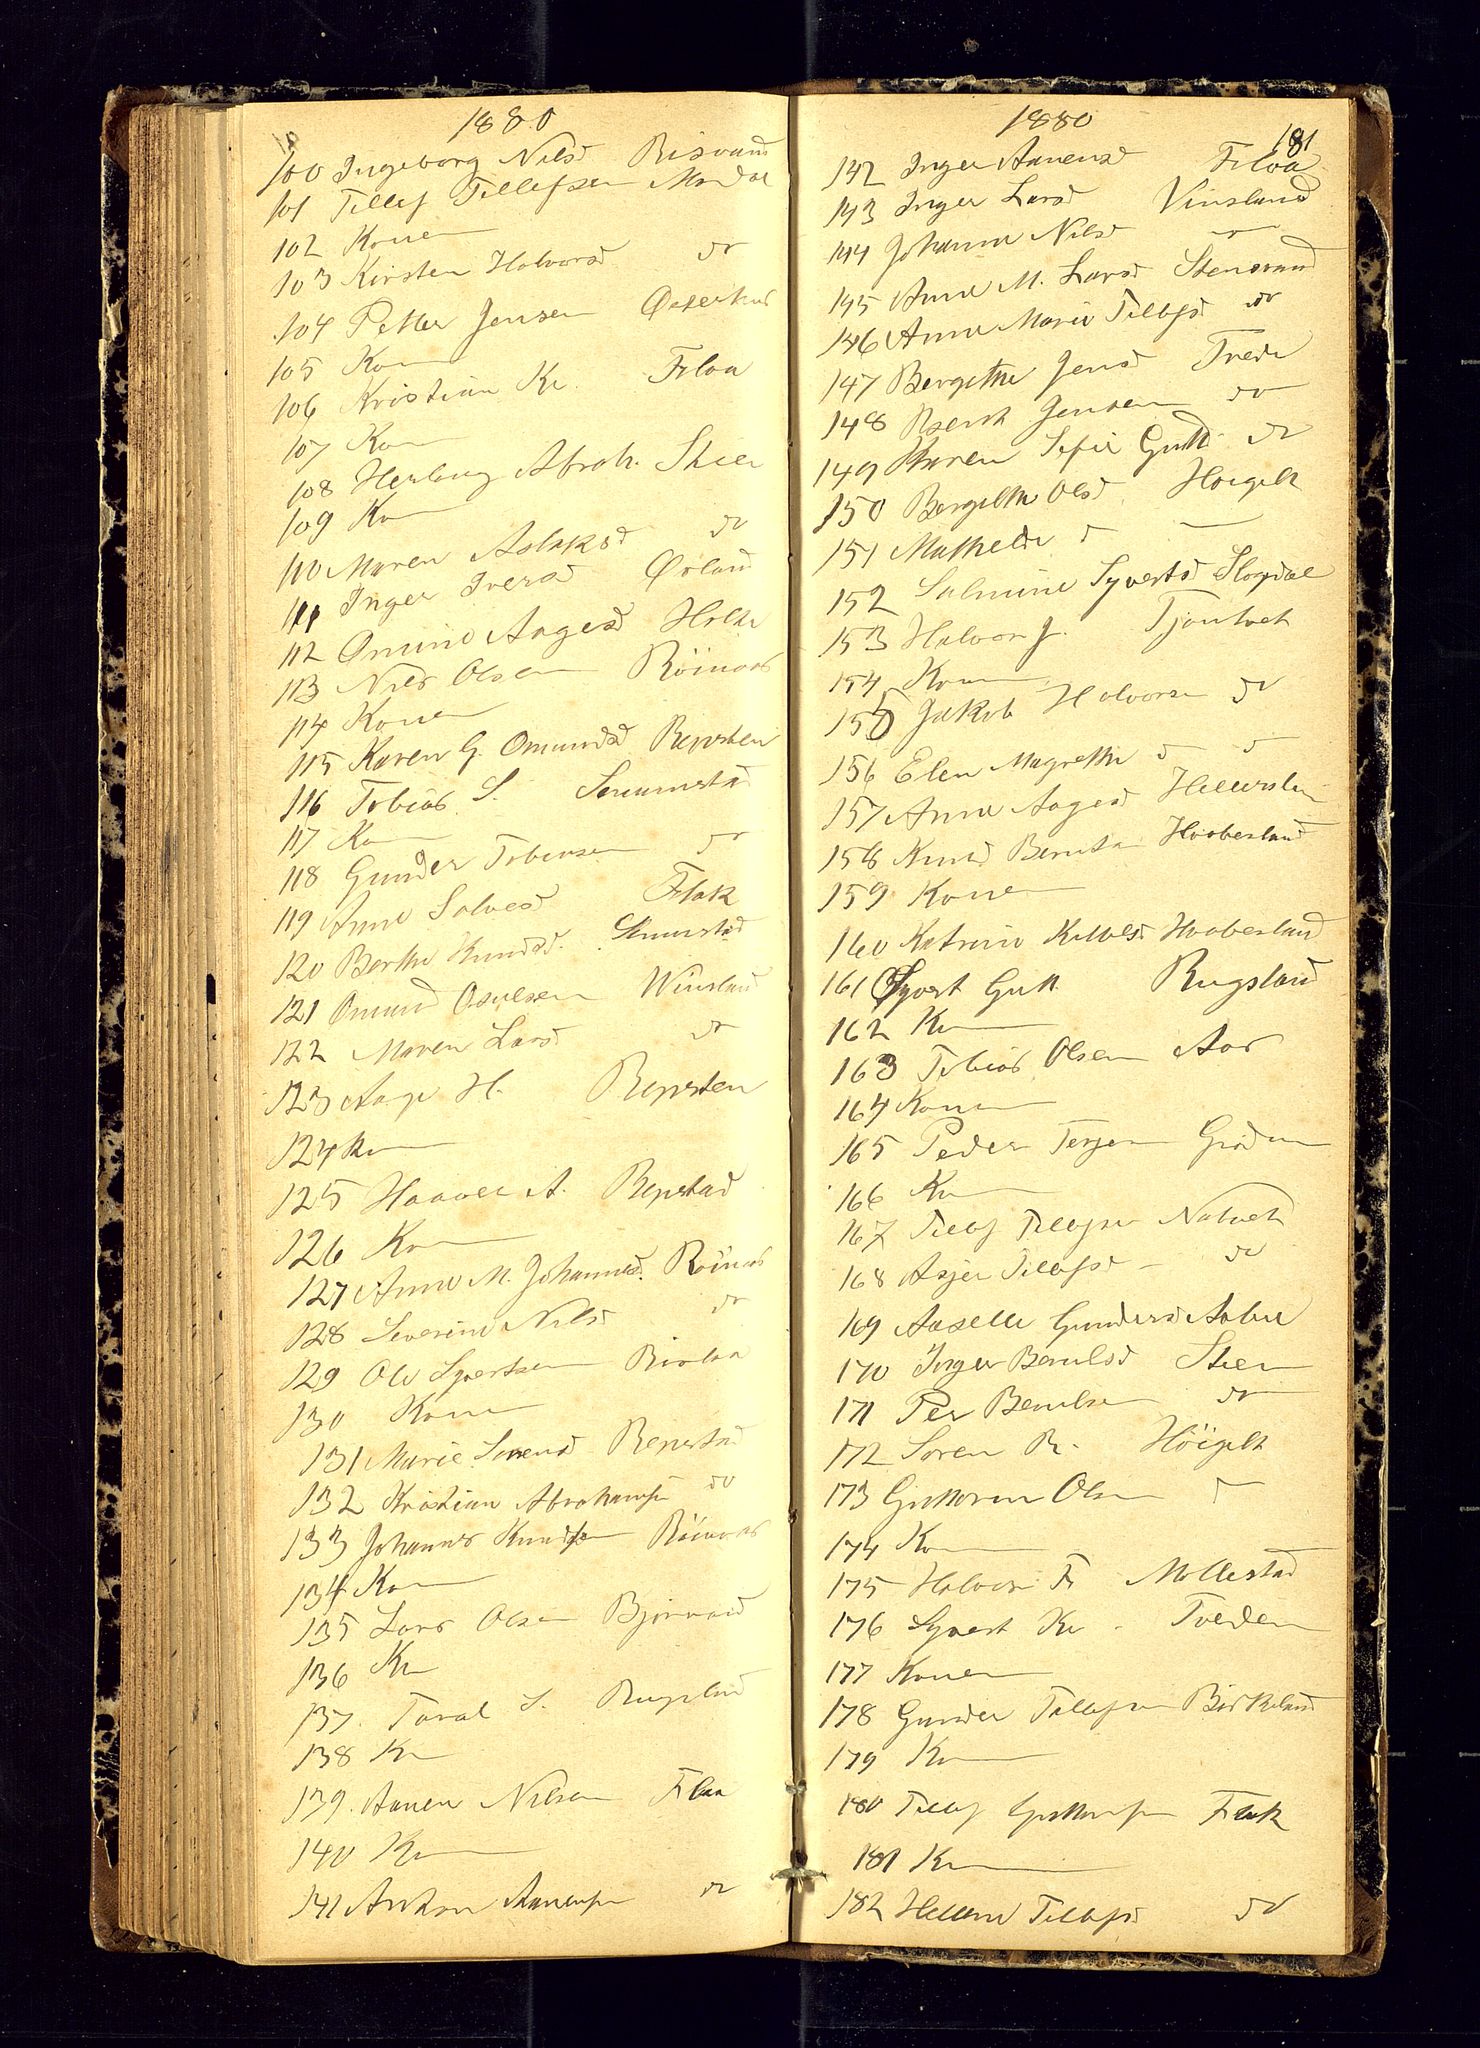 1880
100 Ingeborg Nilsd Risvand
101 Tellef Tellefsen Mandal
102 Konen
103 Kirsten Halvorsd do
104 Petter Jensen
105 Kon
106 Kristian Kr. Flaa
107 Kon
108 Abrah. Skien
109 Kon
110 Maren Aslaksd do
111 Inger Iversd
112 Omund Aagesd
113 Nils Olsen Röinaas
114 Konen
115 Karen G. Omundsd Repsten
116 Tobias S. Senumstad
117 Kon
118 Gunder Tobiasen do
119 Anne Salvesd Flak
120 Berthe Knudsd. Senumstad
121 Omund Osulsen Winsland
122 Maren Larsd do
123 Aage H. Repsten
124 Kn
125 Haaver A. Repstad
126 Kon
127 Anne M. Johannesd. Röinaas
128 Severine Nilsd do
129 Ole Syvertsen Rislaa
130 Konen
131 Marie Sorensd Repstad
132 Kristian Abrahamsen do
133 Johannes Knudsen Röinaas
134 Kon
135 Lars Olsen Bjorvand
136 Kn
137. Taral S. Rugsland
138 Kn
139. Aanen Nilsen Flaa
140 Kn
141 Anton Aanensen do
1880
181
142 Inger Aanensd Flaa
143 Inger Larsd Vinsland
144 Johanne Nilsd do
145 Anne M. Larsd Stensvand
146 Anne Marie Tellefsd do
147 Bergithe Jensd Trede
148 Bernt Jensen do
149 Karen Sofie Guttd. do
150 Bergithe Olsd Hoigilt
151 Mathilde d
152 Salmine Syvertsd Slogdal
153 Halvor J. Tjomtvet
154 Kon
155 Jakob Halvorsen do
156 Elen Magrethe d d
157 Anne Aagesd
158 Knud Berntsen Haabesland
159 Konen
160 Katrine Haabesland
161 Syvert Gutt Rugsland
162 Kn
163 Tobias Olsen Aas
164 Konen
165 Peder Terjesen
166 Kn
167 Tellef Tellefsen Natvet
168 Asjer Tellefsd do
169 Aaselle Gundersd
170 Inger Berulsd Skien
171 Per Berulsen do
172 Soren R. Höigilt
173 Guttorm Olsen d
174 Kon
175 Halvor F. Mollestad
176 Syvert Kr. Tveden
177 Konen
178 Gunder Tellefsen Birkeland
179 Kn
180 Tellef Guttormsen Flak
181 Kn
182 Hellene Tellefsd do